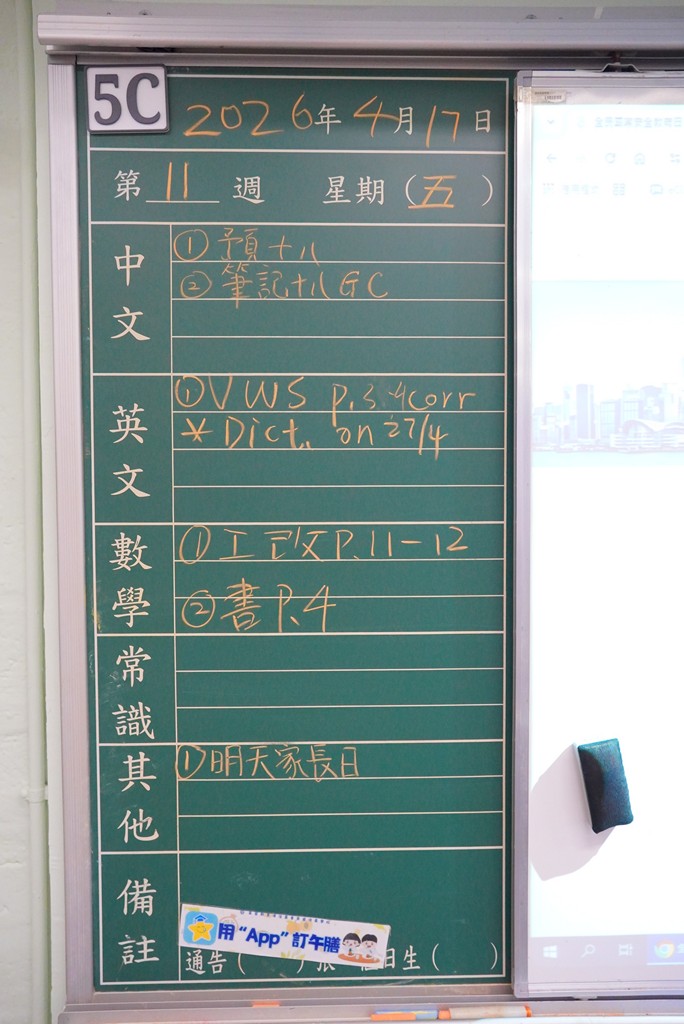 5C
2026年4月17日
第11週 星期(五)
中文
①預十八
②筆記十八GC
英文
①VWS p.3-4corr
*Dict. on 27/4
數學
①工改P.11-12
②書P.4
常識
其他
①明天家長日
備註
用“App”訂午膳
通告( )張 日生( )